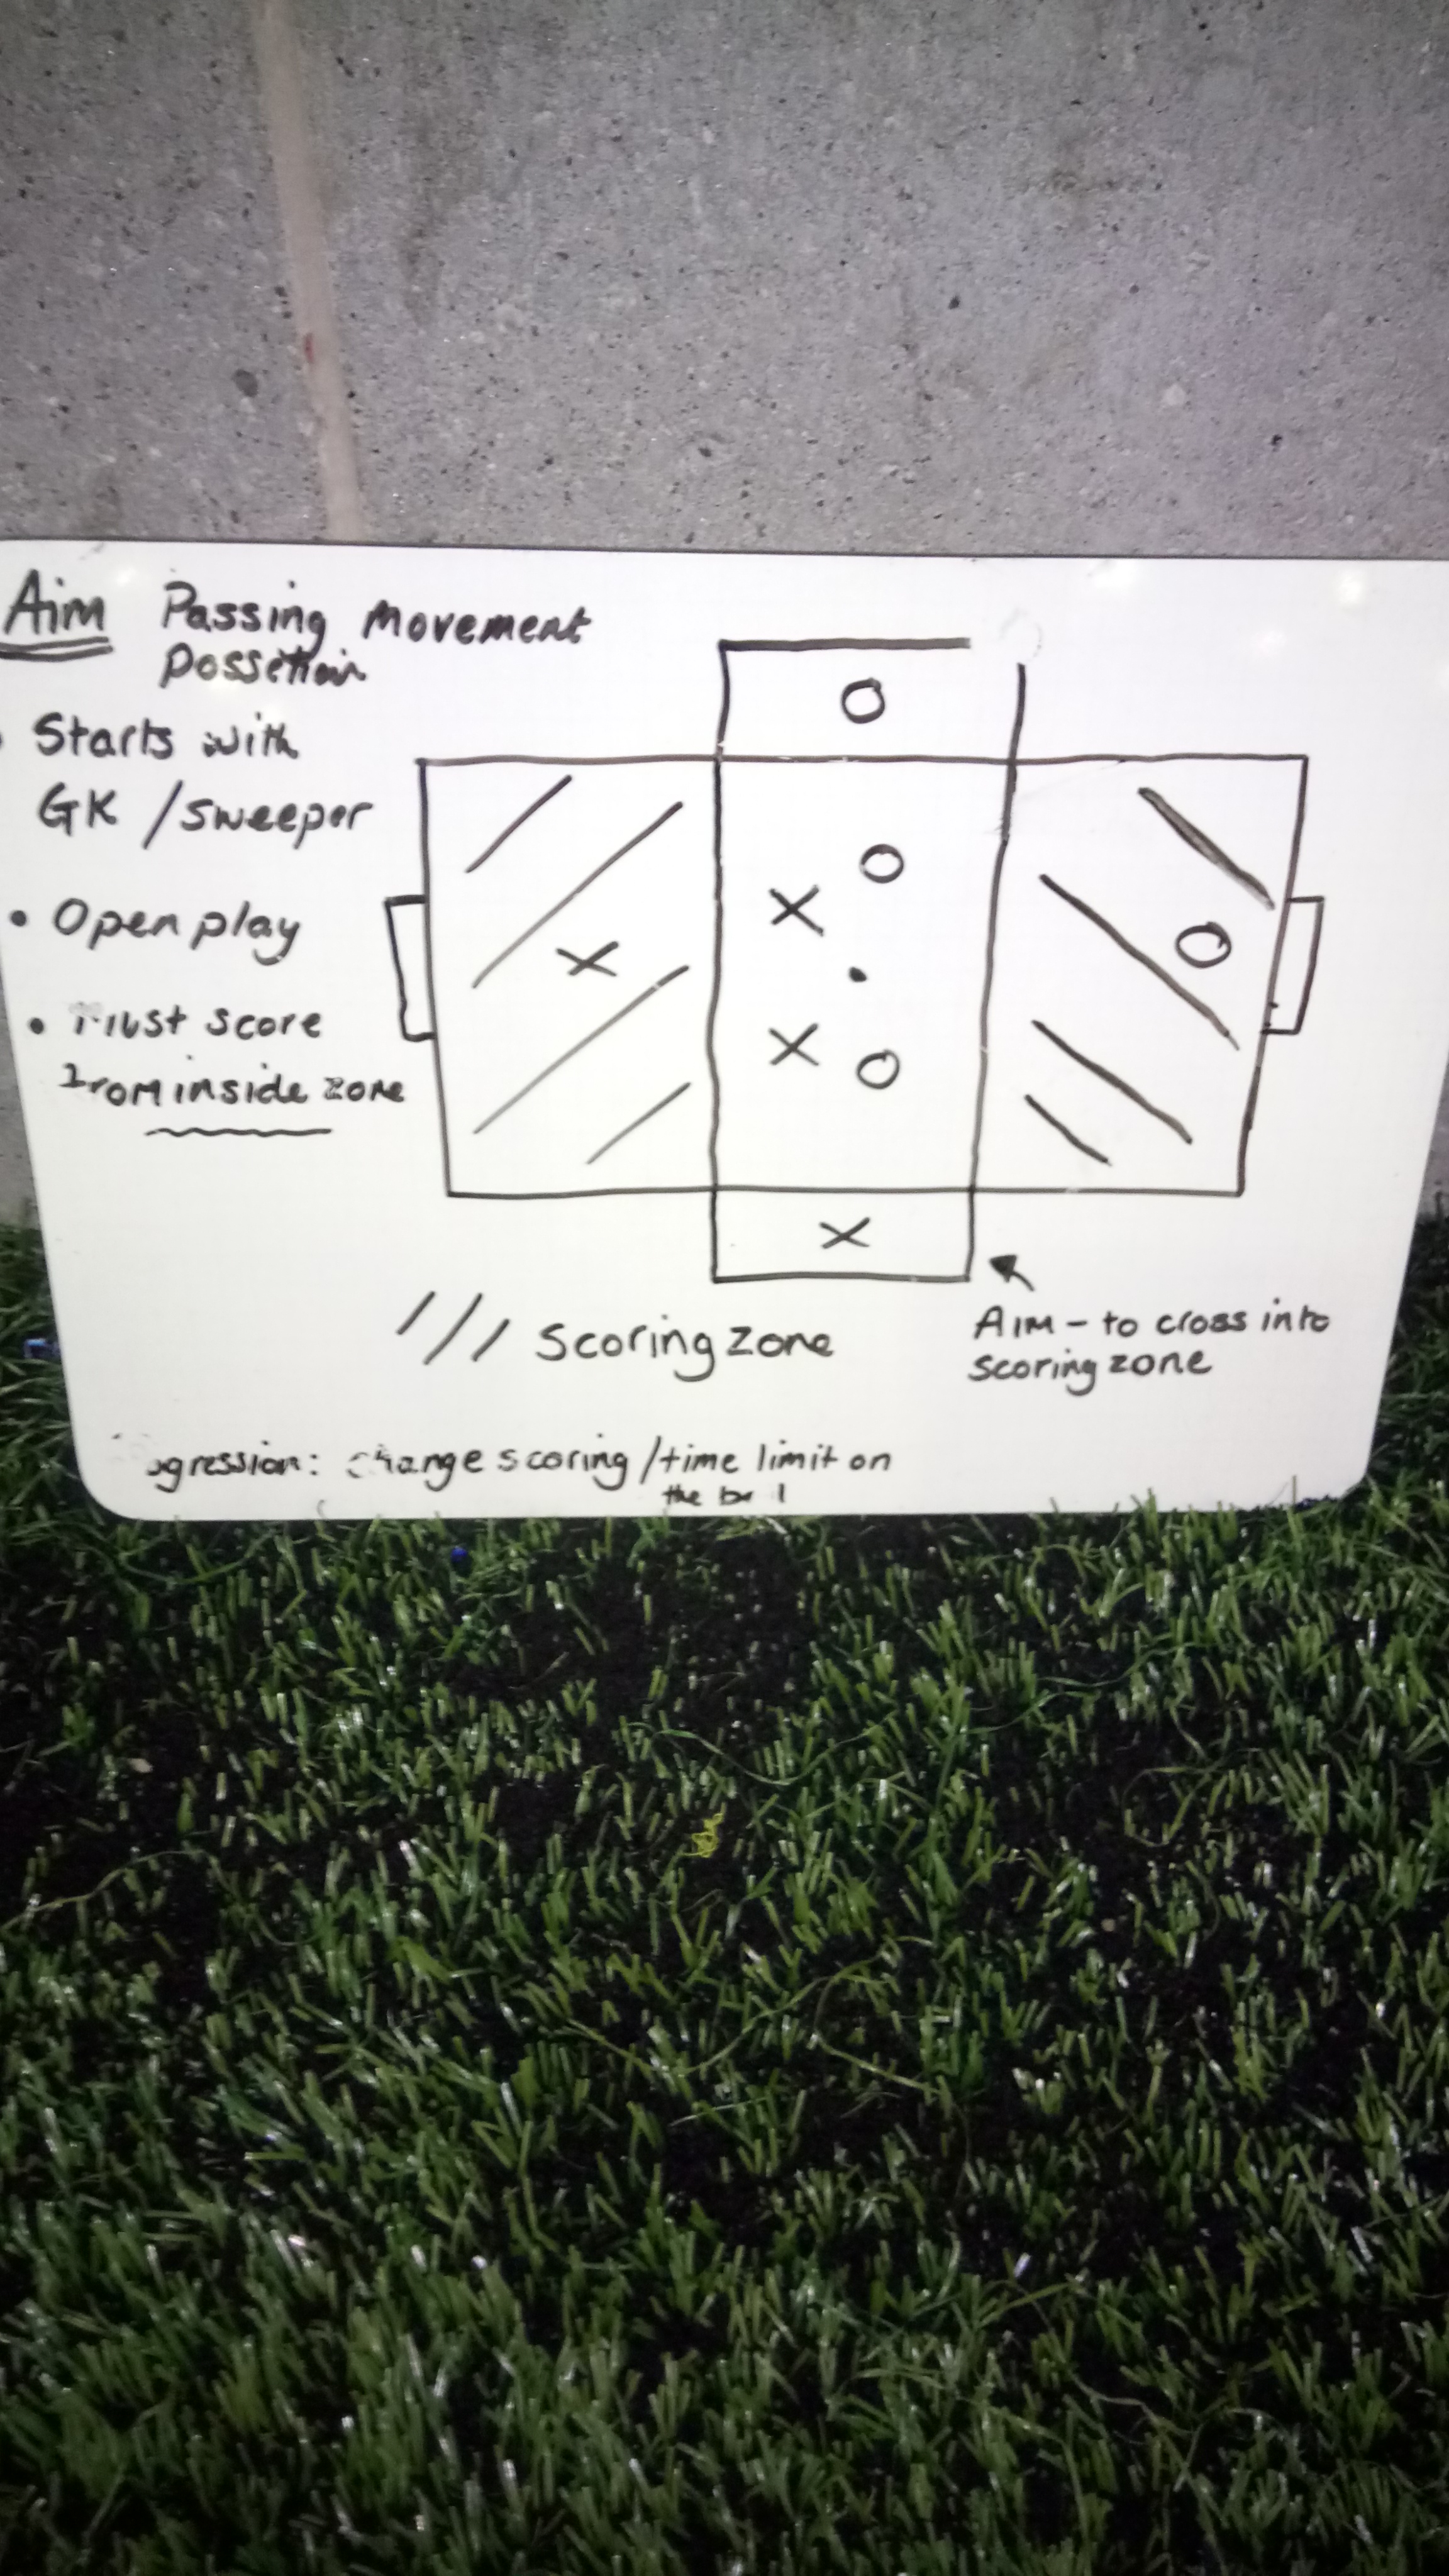 Aim Passing movement
Starts with
GK / sweeper
• Open play
• Must score
from inside zone
/// Scoring zone
AIM - to cross into
scoring zone
change scoring / time limit on
the